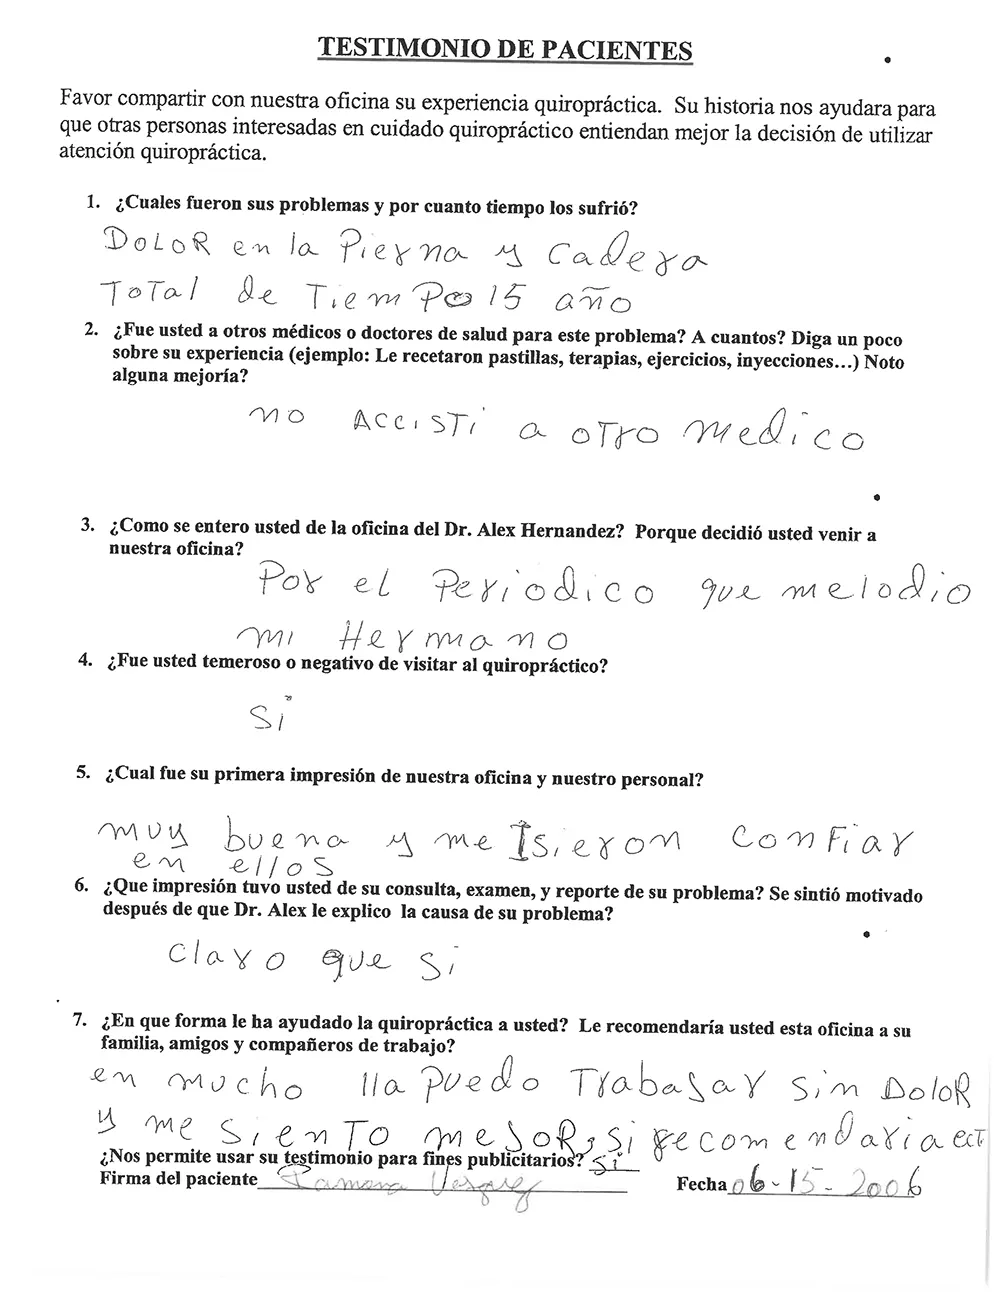 TESTIMONIO DE PACIENTES
Favor compartir con nuestra oficina su experiencia quiropráctica. Su historia nos ayudara para
que otras personas interesadas en cuidado quiropráctico entiendan mejor la decisión de utilizar
atención quiropráctica.
1. ¿Cuales fueron sus problemas y por cuanto tiempo los sufrió?
DOLOR en la Pierna y Cadera
TOTal de TiemPo 15 año
2. ¿Fue usted a otros médicos o doctores de salud para este problema? A cuantos? Diga un poco
sobre su experiencia (ejemplo: Le recetaron pastillas, terapias, ejercicios, inyecciones...) Noto
alguna mejoría?
no ACCISTI a OTro medico
3. ¿Como se entero usted de la oficina del Dr. Alex Hernandez? Porque decidió usted venir a
nuestra oficina?
Por el Periodico que melodio
mi Hermano
4. ¿Fue usted temeroso o negativo de visitar al quiropráctico?
Si
5. ¿Cual fue su primera impresión de nuestra oficina y nuestro personal?
muy buena y me Isieron ConFiar
en ellos
6. ¿Que impresión tuvo usted de su consulta, examen, y reporte de su problema? Se sintió motivado
después de que Dr. Alex le explico la causa de su problema?
Claro que Si
7. ¿En que forma le ha ayudado la quiropráctica a usted? Le recomendaría usted esta oficina a su
familia, amigos y compañeros de trabajo?
en mucho lla puedo Trabasar Sin DoloR
y me SienTo meSoR, Si recomendaria ect
¿Nos permite usar su testimonio para fines publicitarios? Si
Firma del paciente Ramona Vasquez Fecha 06-15-2006